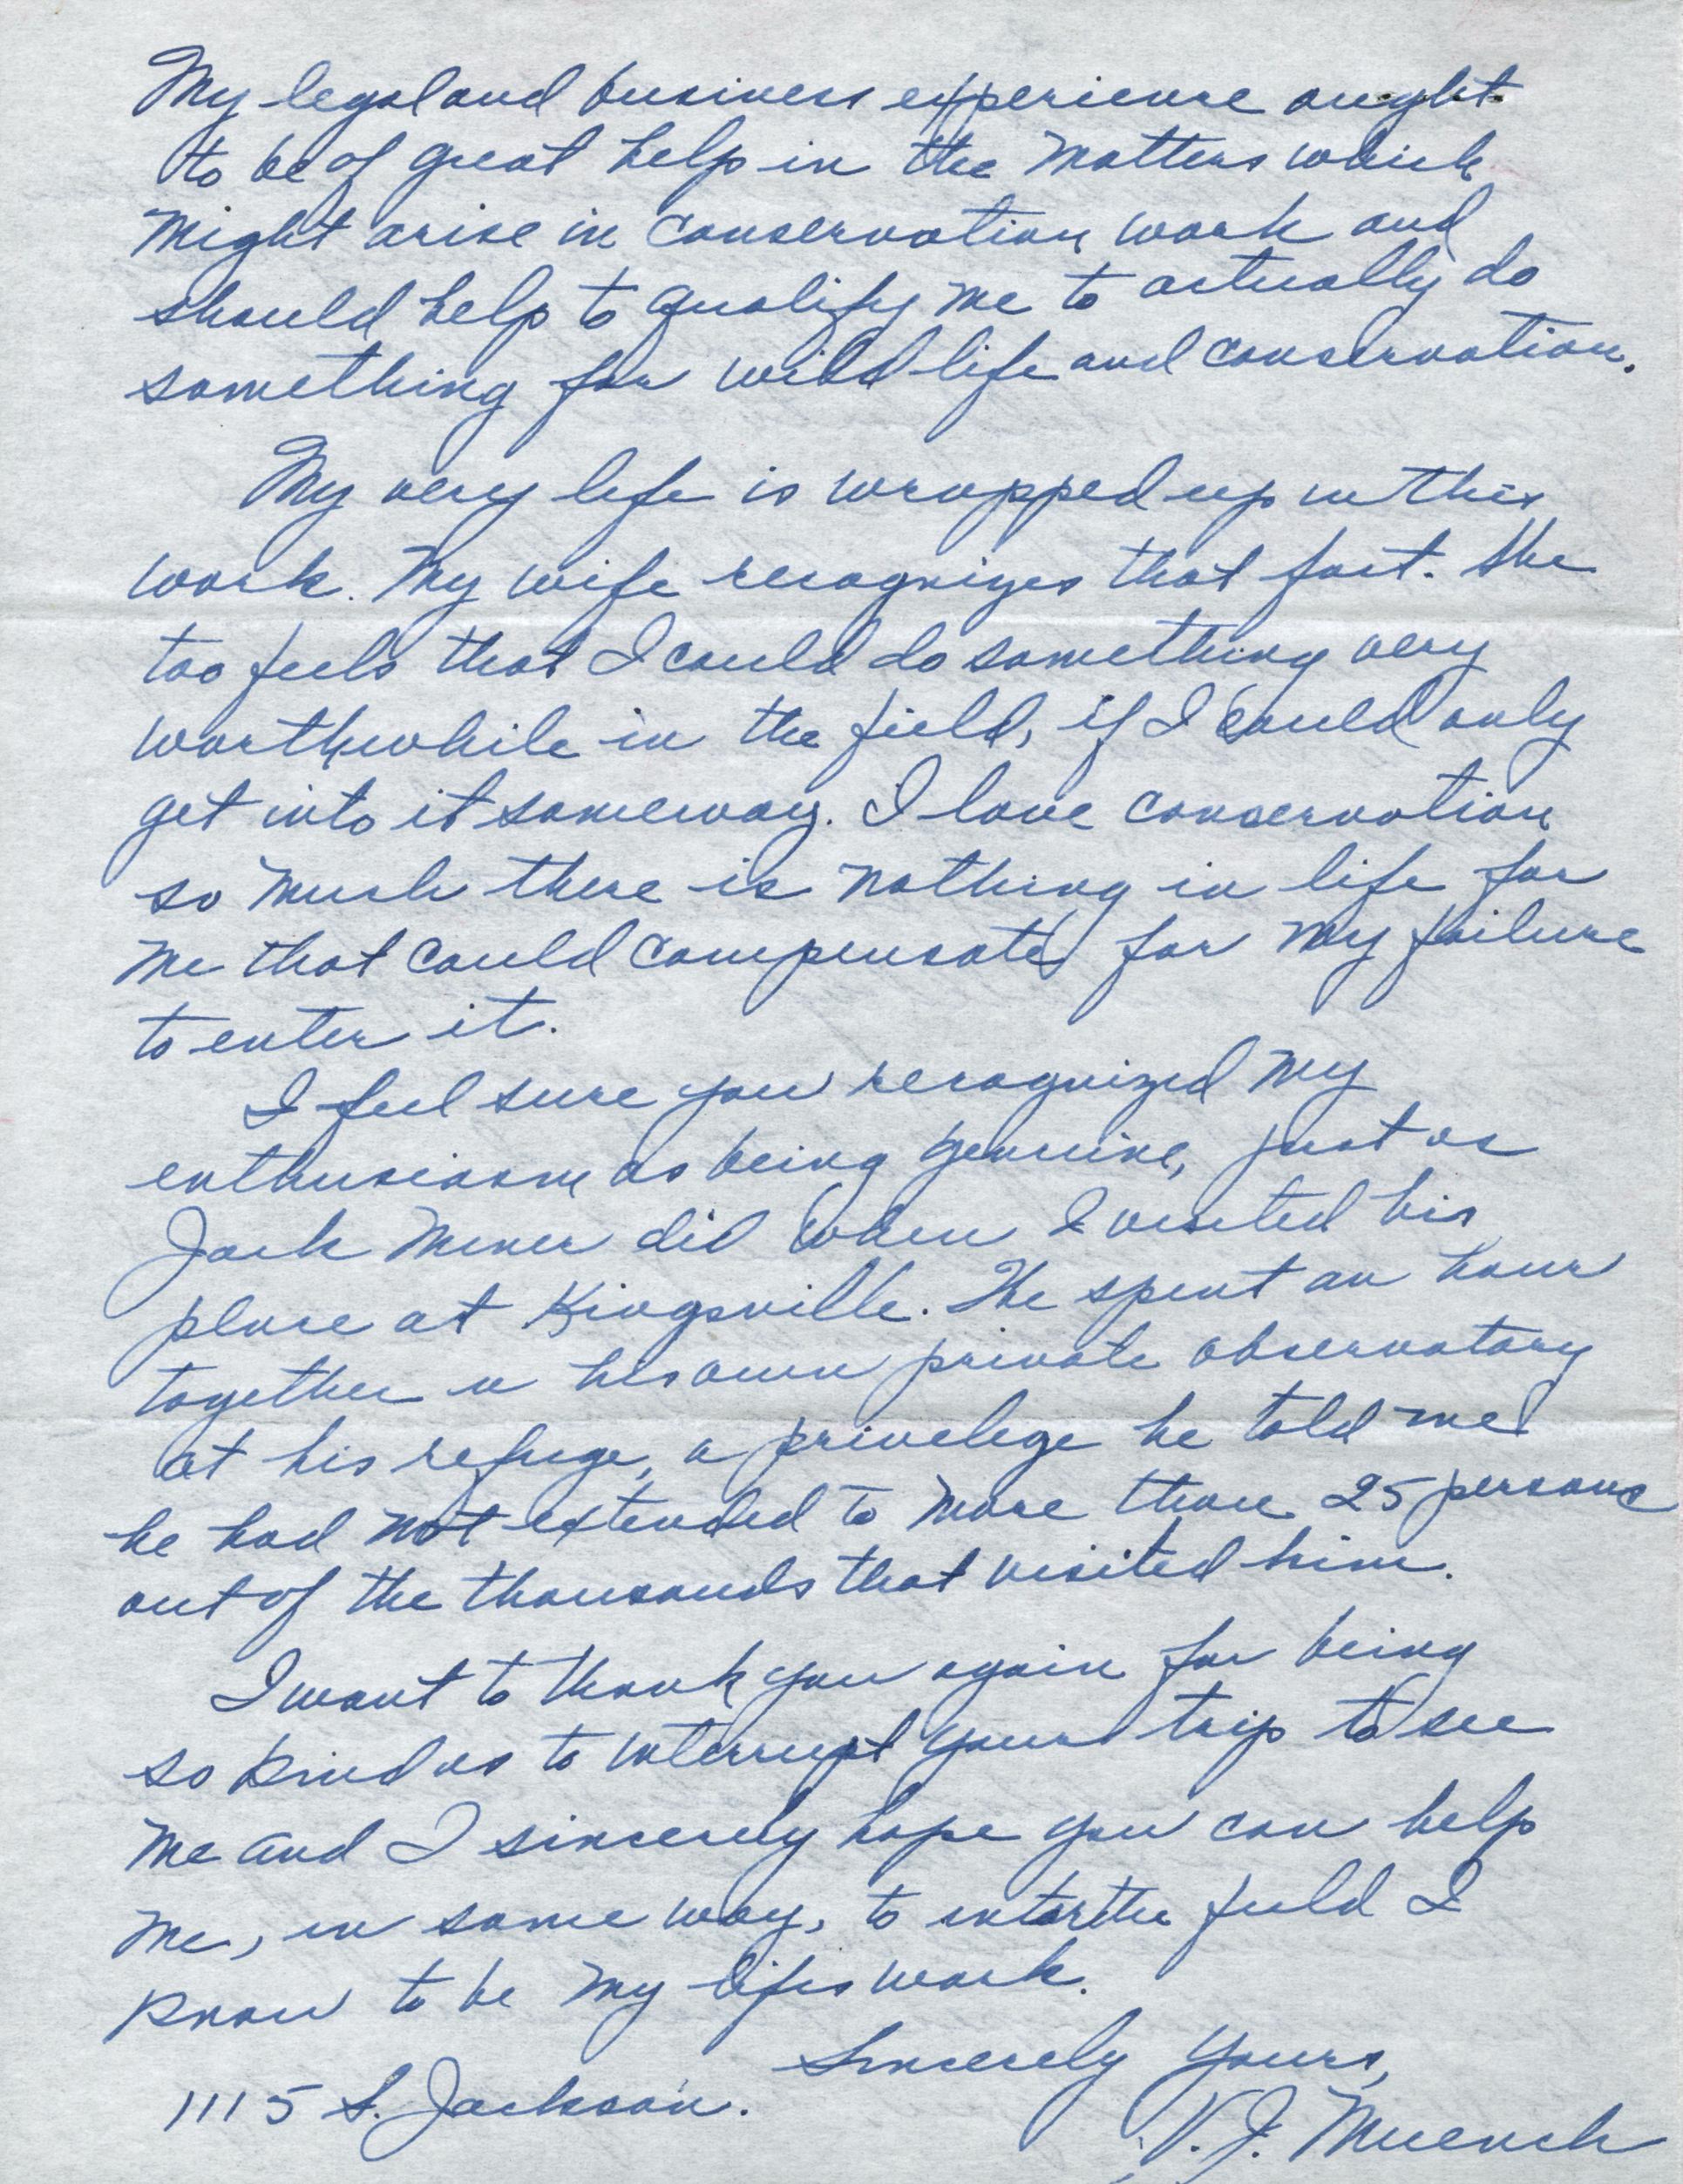 My legal and business experience ought
to be of great help in the matters which
might arise in conservation work and
should help to qualify me to actually do
something for wild life and conservation.
My very life is wrapped up in this
work. My wife recognizes that fact. She
too feels that I could do something very
worthwhile in the field, if I could only
get into it someway. I love conservation
so much there is nothing in life for
me that could compensate for my failure
to enter it.
I feel sure you recognized my
enthusiasm as being genuine, just as
Jack Miner did when I visited his
place at Kingsville. He spent an hour
together in his own private observatory
at his refuge, a privelege he told me
he had not extended to more than 25 persons
out of the thousands that visited him.
I want to thank you again for being
so kind as to interrupt your trip to see
me and I sincerely hope you can help
me, in some way, to enter the field I
know to be my lifes work.
Sincerely Yours,
1115 S. Jackson.
V. J. Muench